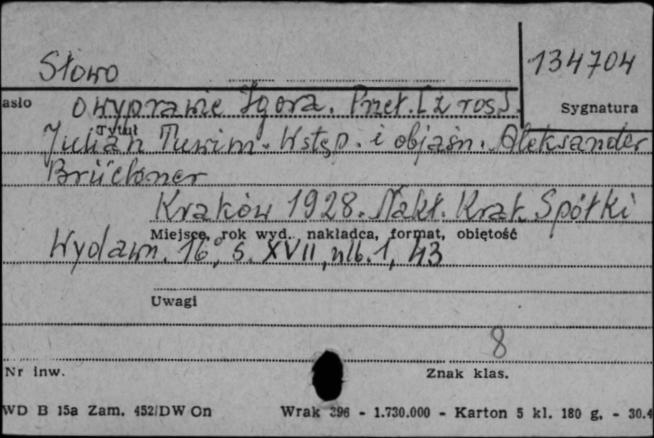 Słowo
134704
asło
o wyprawie Igora. Przeł. [z ros].
Sygnatura
Tytuł
Julian Tuwim. Wstęp. i objaśn. Aleksander
Brückner
Kraków 1928. Nakł. Krak. Spółki
Miejsce, rok wyd., nakładca, format, objętość
Wydawn. 16°, s. XVII, nlb. 1, 43
Uwagi
8
Nr inw.
Znak klas.
WD B 15a Zam. 452/DW On Wrak 396 - 1.730.000 - Karton 5 kl. 180 g. - 30.4